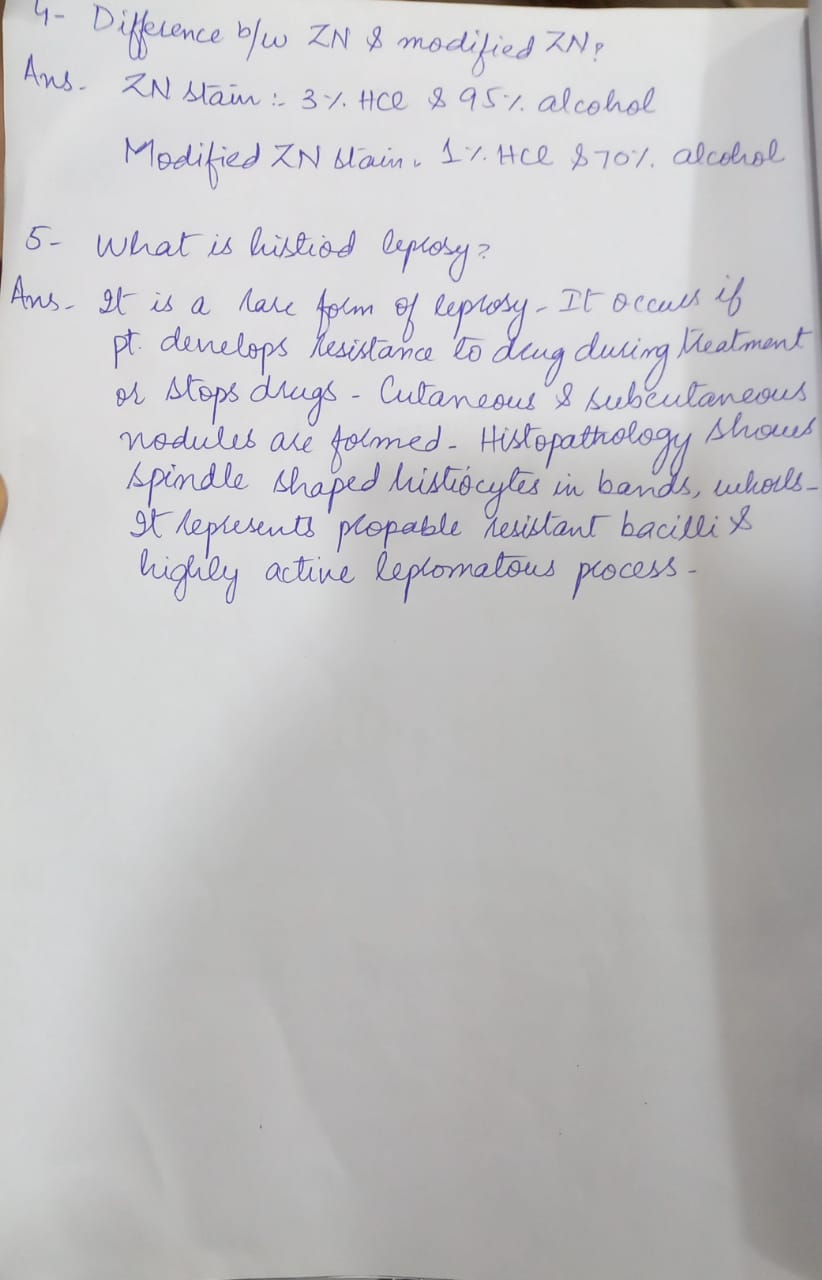 4- Difference b/w ZN & modified ZN?
Ans. ZN stain :- 3% HCl & 95% alcohol
Modified ZN stain. 1% HCl & 70% alcohol
5- What is histiod leprosy?
Ans- It is a rare form of leprosy. It occurs if
pt. develops resistance to drug during treatment
or stops drugs - Cutaneous & subcutaneous
nodules are formed - Histopathology shows
spindle shaped histiocytes in bands, whorls-
It represents propable resistant bacilli &
highly active lepromatous process -